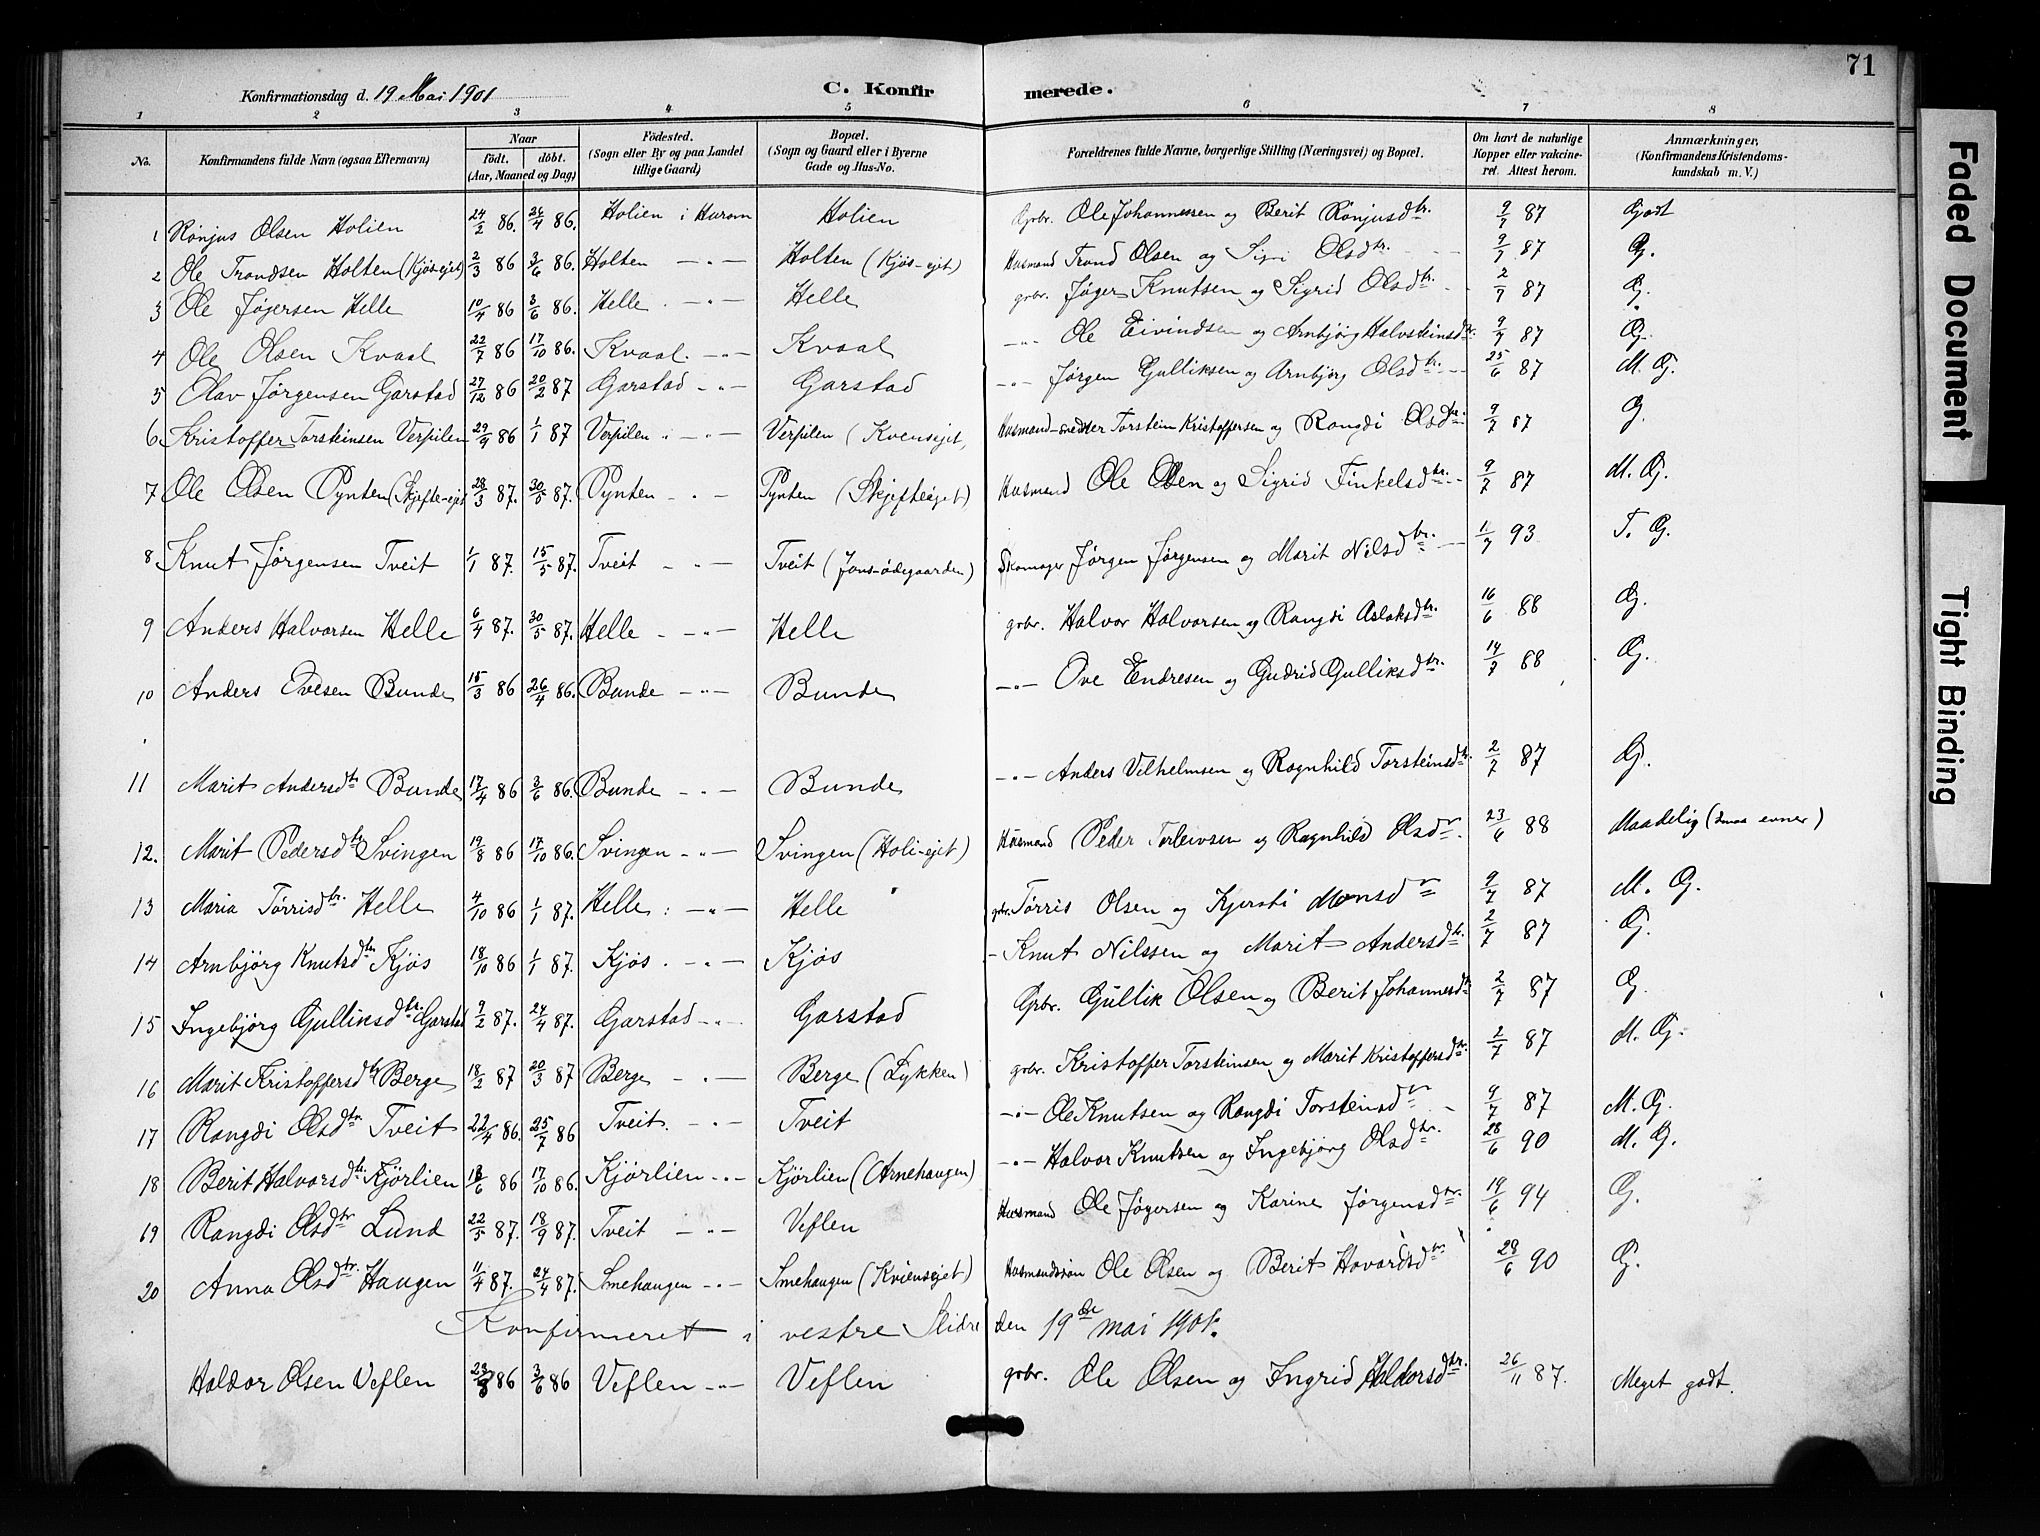 71
Konfirmationsdag d. 19 Mai 1901
C. Konfirmerede.
1 2 3 4 5 6 7 8
No. Konfirmandens fulde Navn (ogsaa Efternavn) Naar födt. döbt. (Aar, Maaned og Dag) Födested. (Sogn eller By og paa Landet tillige Gaard) Bopæl. (Sogn og Gaard eller i Byerne Gade og Hus-No. Forældrenes fulde Navne, borgerlige Stilling (Næringsvei) og Bopæl. Om havt de naturlige Kopper eller vakcineret. Attest herom. Anmærkninger, (Konfirmandens Kristendomskundskab m. V.)
1 Rönjus Olsen Holien 24/2 86. 26/4 86. Holien i Hurum Holien Grbr. Ole Johannessen og Berit Rönjusdtr. 9/7 87 Godt
2 Ole Trondsen Holten (Kjös-ejet) 2/3 86 3/6 86. Holten -"- Holten (Kjös-ejet) Husmand Trond Olsen og Sigri Olsdtr. 9/7 87 G.
3 Ole Jögersen Helle 10/4 86 3/6 86. Helle -"- Helle grbr. Jöger Knutsen og Sigrid Olsdtr. 2/7 87 G.
4 Ole Olsen Kvaal 22/7 86 17/10 86. Kvaal. -"- Kvaal -"- Ole Eivindsen og Arnbjörg Halvsteinsdtr. 9/7 87 G.
5 Olav Jörgensen Garstad 27/12 86 20/2 87 Garstad -"- Garstad -"- Jörgen Gulliksen og Arnbjörg Olsdtr. 25/6 87 M. G.
6 Kristoffer Torsteinsen Verpilen 29/9 86 1/1 87 Verpilen -"- Verpilen (Kvensejet, Husmand- Torstein Kristoffersen og Rangdi Olsdtr. 9/7 87 G.
7 Ole Olsen Pynten (Skjefte-ejet 28/3 87. 30/5 87. Pynten -"- Pynten (Skjefteejet) Husmand Ole Olsen og Sigrid Finkelsdtr. 9/7 87 M. G.
8 Knut Jörgensen Tveit 1/1 87. 15/5 87. Tveit -"- Tveit (Jons-ödegaarden) Skomager Jörgen Jörgensen og Marit Nilsdtr. 1/7 93 T. G.
9 Anders Halvorsen Helle 6/4 87. 30/5 87. Helle -"- Helle grbr. Halvor Halvorsen og Rangdi Aslaksdtr. 16/6 88 G.
10 Anders Ovesen Bunde 15/3 86 26/4 86. Bunde -"- Bunde -"- Ove Endresen og Gudrid Gulliksdtr. 14/7 88 G.
11 Marit Andersdtr Bunde 17/4 86 3/6 86. Bunde -"- Bunde -"- Anders Vilhelmsen og Ragnhild Torsteinsdtr. 2/7 87 G.
12. Marit Pedersdtr Svingen 19/8 86 17/10 86. Svingen -"- Svingen (Holi-ejet) Husmand Peder Torleivsen og Ragnhild Olsdtr. 23/6 88 Maadelig (smaa evner)
13 Maria Törrisdtr. Helle 4/10 86 1/1 87. Helle -"- Helle grbr. Törris Olsen og Kjersti Monsdtr 9/7 87 M. G.
14 Arnbjörg Knutsdtr. Kjös 18/10 86 1/1 87. Kjös. -"- Kjös - Knut Nilssen og Marit Andersdtr. 2/7 87 G.
15 Ingebjörg Gulliksdtr. Garstad 9/2 87. 24/4 87. Garstad -"- Garstad Grbr. Gullik Olsen og Berit Johannesdtr 2/7 87 G.
16 Marit Kristoffersdtr Berge 18/2 87 20/3 87 Berge -"- Berge (Lykken) grbr. Kristoffer Torsteinsen og Marit Kristoffersdtr. 2/7 87 M. G.
17 Rangdi Olsdtr. Tveit 22/4 86. 25/7 86 Tveit. -"- Tveit -"- Ole Knutsen og Rangdi Torsteinsdtr 9/7 87 M. G.
18 Berit Halvorsdtr. Kjörlien 18/6 86 17/10 86. Kjörlien -"- Kjörlien (Arnehaugen) -"- Halvor Knutsen og Ingebjörg Olsdtr. 28/6 90 M. G.
19 Rangdi Olsdtr Lund 22/5 87. 18/9 87. Tveit -"- Veflen Husmand Ole Jögersen og Karine Jörgensdtr. 19/6 94 G.
20 Anna Olsdtr. Haugen 11/4 87. 24/4 87. Smehaugen -"- Smehaugen (Kviensejet) Husmandssön Ole Olsen og Berit Havardsdtr. 28/6 90 G.
Konfirmeret i vestre Slidre den 19de mai 1901.
Haldor Olsen Veflen 86 3/6 86 Veflen -"- Veflen grbr. Ole Olsen og Ingrid Haldorsdtr. 26/11 87. Meget godt.
Faded Document
Tight Binding